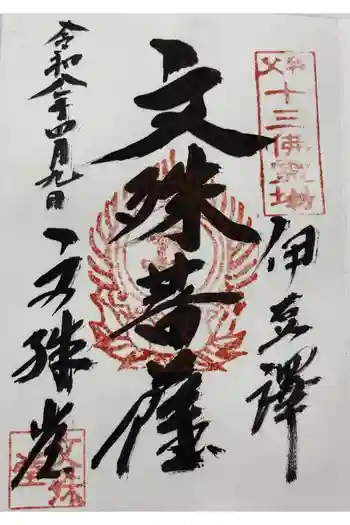 秩父十三佛霊場
伊豆澤
文殊菩薩
文殊堂
令和八年四月九日